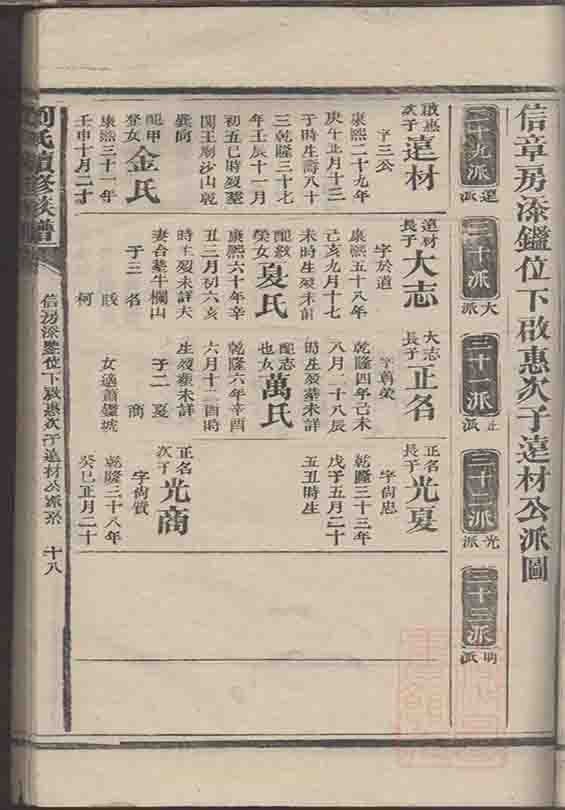 信章房添鑑位下啟惠次子遠材公派圖
二十九派
遠派
三十派
大派
三十一派
正派
三十二派
光派
三十三派
明派
啟惠次子
遠材
字三公
康熙二十九年
庚午正月十三
于時生壽八十
三乾隆三十七
年壬辰十一月
初五巳時歿葬
関王廟沙山乾
巽向
配甲
登女
金氏
康熙三十一年
壬申十月二十
遠材長子
大志
字於道
康熙五十八年
己亥九月十七
未時生歿未詳
配欽
榮女
夏氏
康熙六十年辛
丑三月初六亥
時生歿未詳大
妻合葬牛欄山
子三 名
陔
柯
大志長子
正名
字尊榮
乾隆四年己未
八月二十八辰
時生歿葬未詳
配志
也女
萬氏
乾隆六年辛酉
六月十二酉時
生歿葬未詳
子二 夏
商
女適蕭疆城
正名長子
光夏
字尚忠
乾隆三十三年
戊子五月二十
五丑時生
正名次子
光商
字尚質
乾隆三十八年
癸巳正月二十
氏續修族譜
信房添鑑位下啟惠次子遠材公派系 十八